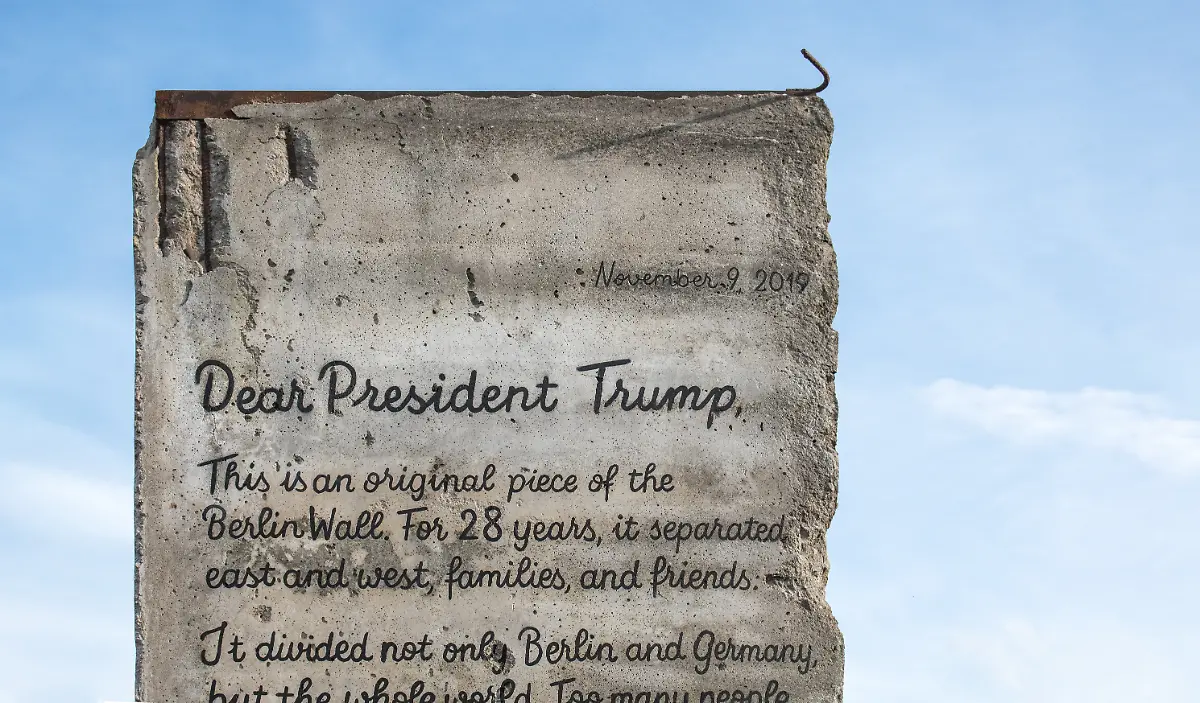 November 9, 2019
Dear President Trump,
This is an original piece of the
Berlin Wall. For 28 years, it separated
east and west, families, and friends.
It divided not only Berlin and Germany,
but the whole world. Too many people